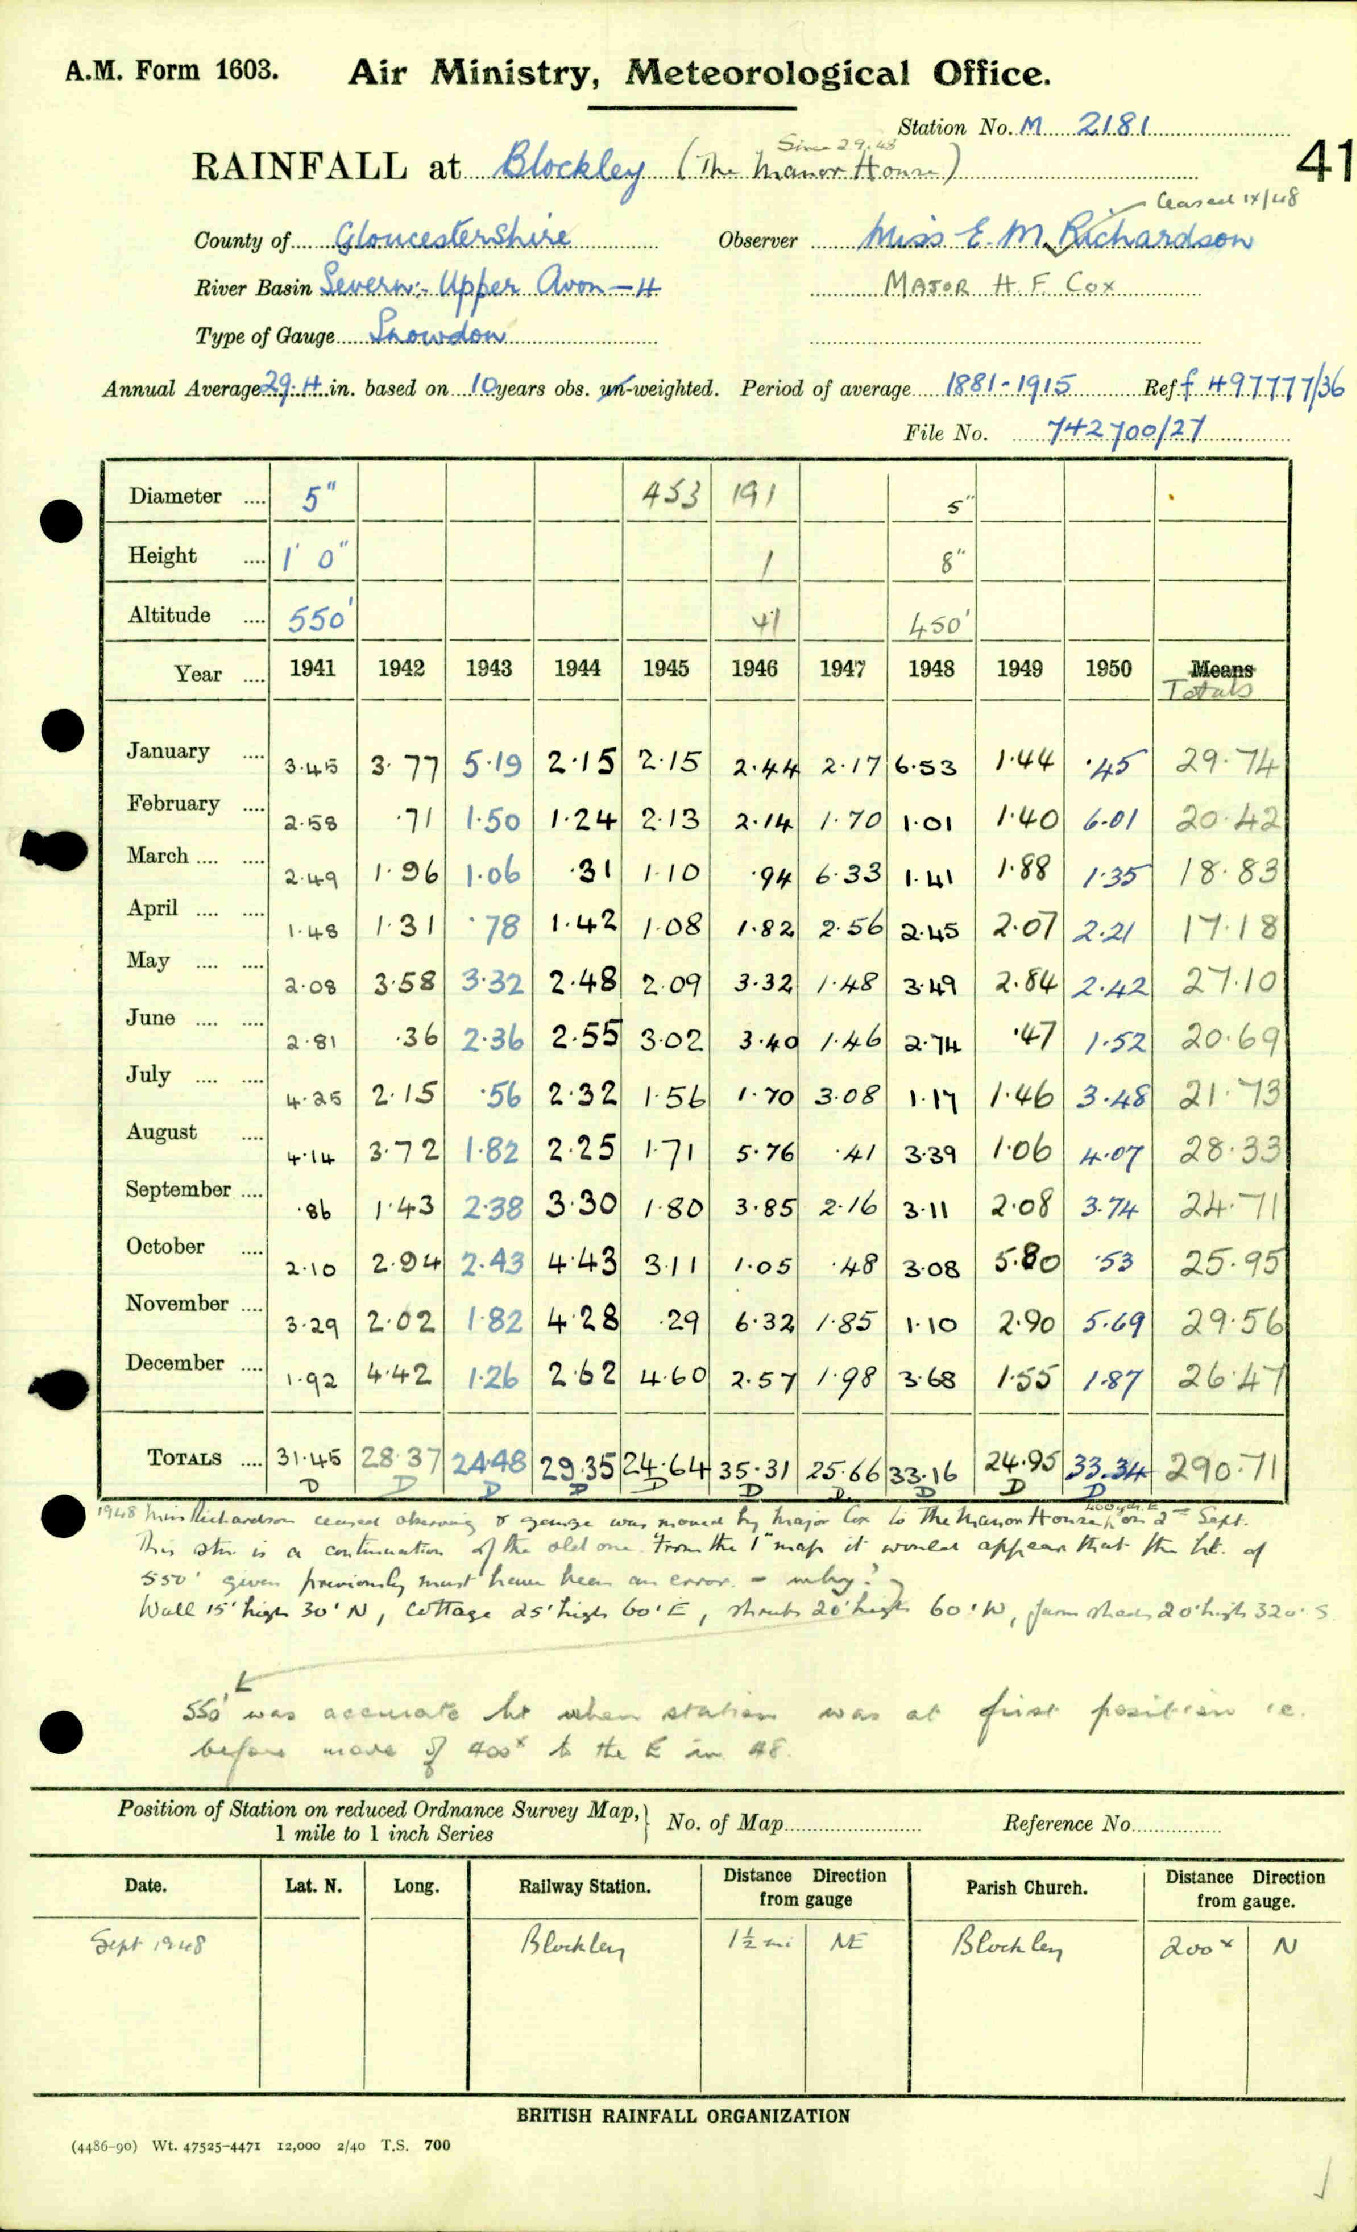 A.M. Form 1603. Air Ministry, Meteorological Office.
Station No. M 2181
Since 2.9.48
RAINFALL at Blockley (The Manor House)
41
Ceased IX/48
County of Gloucestershire Observer Miss E. M. Richardson
River Basin Severn:- Upper Avon - 4 MAJOR H. F. COX
Type of Gauge Snowdon
Annual Average 29.4 in. based on 10 years obs. un-weighted. Period of average 1881-1915 Ref f 497777/36
File No. 742700/27
Diameter .... 5" 453 191 5"
Height .... 1' 0" 1 8"
Altitude .... 550' 41 450'
Year .... 1941 1942 1943 1944 1945 1946 1947 1948 1949 1950 Means
Totals
January .... 3.45 3.77 5.19 2.15 2.15 2.44 2.17 6.53 1.44 .45 29.74
February .... 2.58 .71 1.50 1.24 2.13 2.14 1.70 1.01 1.40 6.01 20.42
March .... .... 2.49 1.96 1.06 .31 1.10 .94 6.33 1.41 1.88 1.35 18.83
April .... .... 1.48 1.31 .78 1.42 1.08 1.82 2.56 2.45 2.07 2.21 17.18
May .... .... 2.08 3.58 3.32 2.48 2.09 3.32 1.48 3.49 2.84 2.42 27.10
June .... .... 2.81 .36 2.36 2.55 3.02 3.40 1.46 2.74 .47 1.52 20.69
July .... .... 4.25 2.15 .56 2.32 1.56 1.70 3.08 1.17 1.46 3.48 21.73
August .... 4.14 3.72 1.82 2.25 1.71 5.76 .41 3.39 1.06 4.07 28.33
September .... .86 1.43 2.38 3.30 1.80 3.85 2.16 3.11 2.08 3.74 24.71
October .... 2.10 2.94 2.43 4.43 3.11 1.05 .48 3.08 5.80 .53 25.95
November .... 3.29 2.02 1.82 4.28 .29 6.32 1.85 1.10 2.90 5.69 29.56
December .... 1.92 4.42 1.26 2.62 4.60 2.57 1.98 3.68 1.55 1.87 26.47
TOTALS .... 31.45 28.37 24.48 29.35 24.64 35.31 25.66 33.16 24.95 33.34 290.71
D D D D D D D D D D
400 yds. E
1948 Miss Richardson ceased observing & gauge was moved by Major Cox to The Manor House, on 2nd Sept.
This stn is a continuation of the old one. From the 1" map it would appear that the ht. of
550' given previously must have been an error. - why?
Wall 15' high 30' N, Cottage 25' high 60' E, shrubs 20' high 60' W, farm sheds 20' high 320' S
550' was accurate ht when station was at first position i.e.
before move of 400x to the E in 48.
Position of Station on reduced Ordnance Survey Map, No. of Map Reference No.
1 mile to 1 inch Series
Date. Lat. N. Long. Railway Station. Distance Direction from gauge Parish Church. Distance Direction from gauge.
Sept 1948 Blockley 1½ mi NE Blockley 200x N
BRITISH RAINFALL ORGANIZATION
(4486-90) Wt. 47525-4471 12,000 2/40 T.S. 700